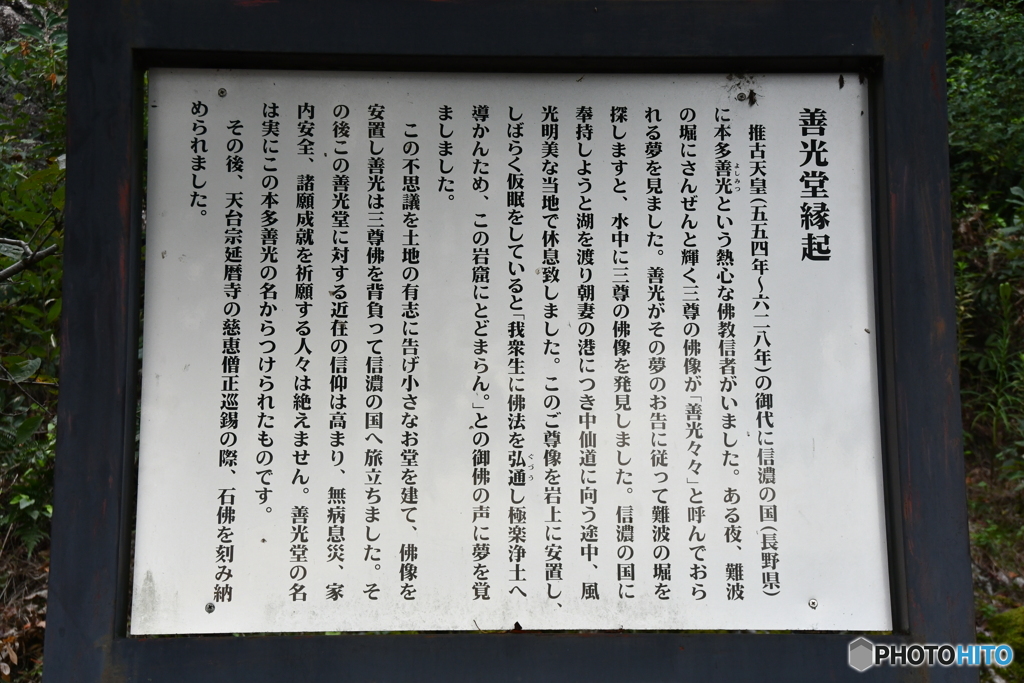 善光堂縁起
推古天皇(五五四年〜六二八年)の御代に信濃の国(長野県)
に本多善光という熱心な佛教信者がいました。ある夜、難波
よしみつ
の堀にさんぜんと輝く三尊の佛像が「善光々々」と呼んでおら
れる夢を見ました。善光がその夢のお告に従って難波の堀を
探しますと、水中に三尊の佛像を発見しました。信濃の国に
奉持しようと湖を渡り朝妻の港につき中仙道に向う途中、風
光明美な当地で休息致しました。このご尊像を岩上に安置し、
しばらく仮眠をしていると「我衆生に佛法を弘通し極楽浄土へ
ぐづう
導かんため、この岩窟にとどまらん。」との御佛の声に夢を覚
ましました。
この不思議を土地の有志に告げ小さなお堂を建て、佛像を
安置し善光は三尊佛を背負って信濃の国へ旅立ちました。そ
の後この善光堂に対する近在の信仰は高まり、無病息災、家
内安全、諸願成就を祈願する人々は絶えません。善光堂の名
は実にこの本多善光の名からつけられたものです。
その後、天台宗延暦寺の慈恵僧正巡錫の際、石佛を刻み納
められました。
PHOTOHITO